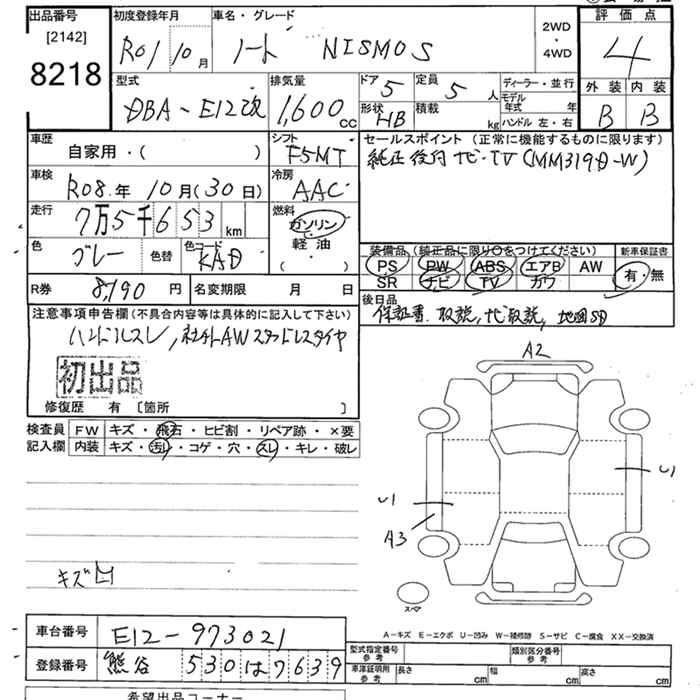 出品番号 初度登録年月 車名・グレード 2WD・4WD 評価点
[2142] R01/10月 ノート NISMO S 4
8218
型式 排気量 ドア 定員 ディーラー・並行 外装 内装
DBA-E12改 1,600cc 5 5人 モデル年式 年 B B
形状 積載 ハンドル 左・右
HB kg
車歴 シフト セールスポイント(正常に機能するものに限ります)
自家用・( ) F5MT 純正後付ナビ・TV(MM319D-W)
車検 冷房
R08年10月(30日) AAC
走行 燃料
7万5千653km ガソリン
色 色替 色コード 軽油 装備品(純正品に限り○をつけてください) 新車保証書
グレー KAD ( ) PS PW ABS エアB AW 有・無
SR ナビ TV カワ
R券 8,190円 名変期限 月 日 後日品
保証書、取説、ナビ取説、地図SD
注意事項申告欄(不具合内容等は具体的に記入して下さい)
ハンドルスレ,社外AWスタッドレスタイヤ
初出品
修復歴 有 [箇所 ]
検査員 FW キズ・飛石・ヒビ割・リペア跡・×要
記入欄 内装 キズ・汚レ・コゲ・穴・スレ・キレ・破レ
A2
U1
U1
A3
キズ凹
スペア
A-キズ E-エクボ U-凹み W-補修跡 S-サビ C-腐食 XX-交換済
車台番号 E12-973021
登録番号 熊谷 530 は 7639
型式指定番号 参考 類別区分番号 参考
車庫証明用 参考 長さ cm 幅 cm 高さ cm
希望出品コーナー